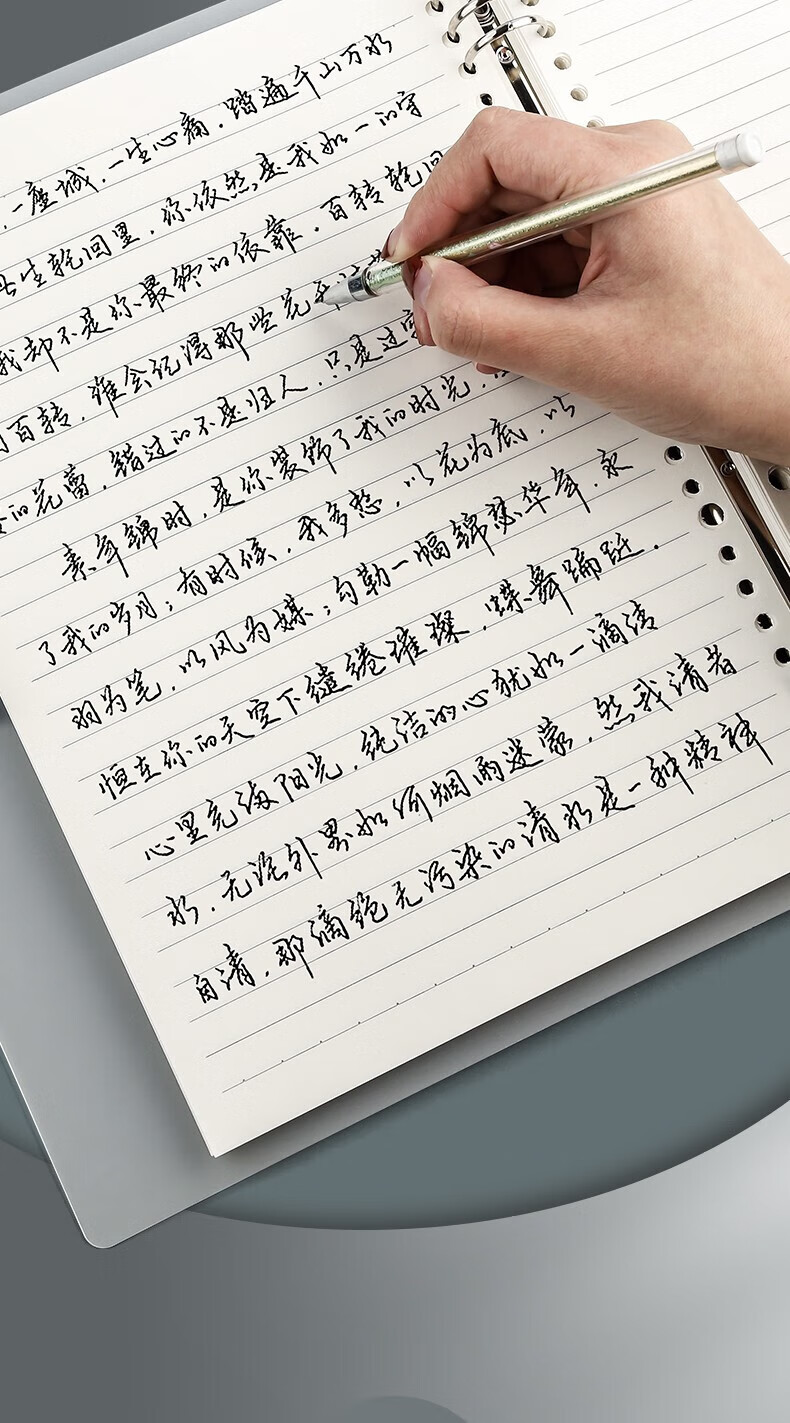 一座城，一生心痛，踏遍千山万水
生轮回里，你依然是我如一的守
我却不是你最终的依靠，百转轮回
百转，谁会记得那些花开
的花蕾，错过的不是归人，只是过客
素年锦时，是你装饰了我的时光，
了我的岁月；有时候，我多想，以花为底，以
羽为笔，以风为媒；勾勒一幅锦瑟华年，永
恒在你的天空下缱绻璀璨，蝶舞蹁跹，
心里充满阳光，纯洁的心犹如一滴清
水，无论外界如何烟雨迷蒙，然我清者
自清，那滴绝无污染的清水是一种精神